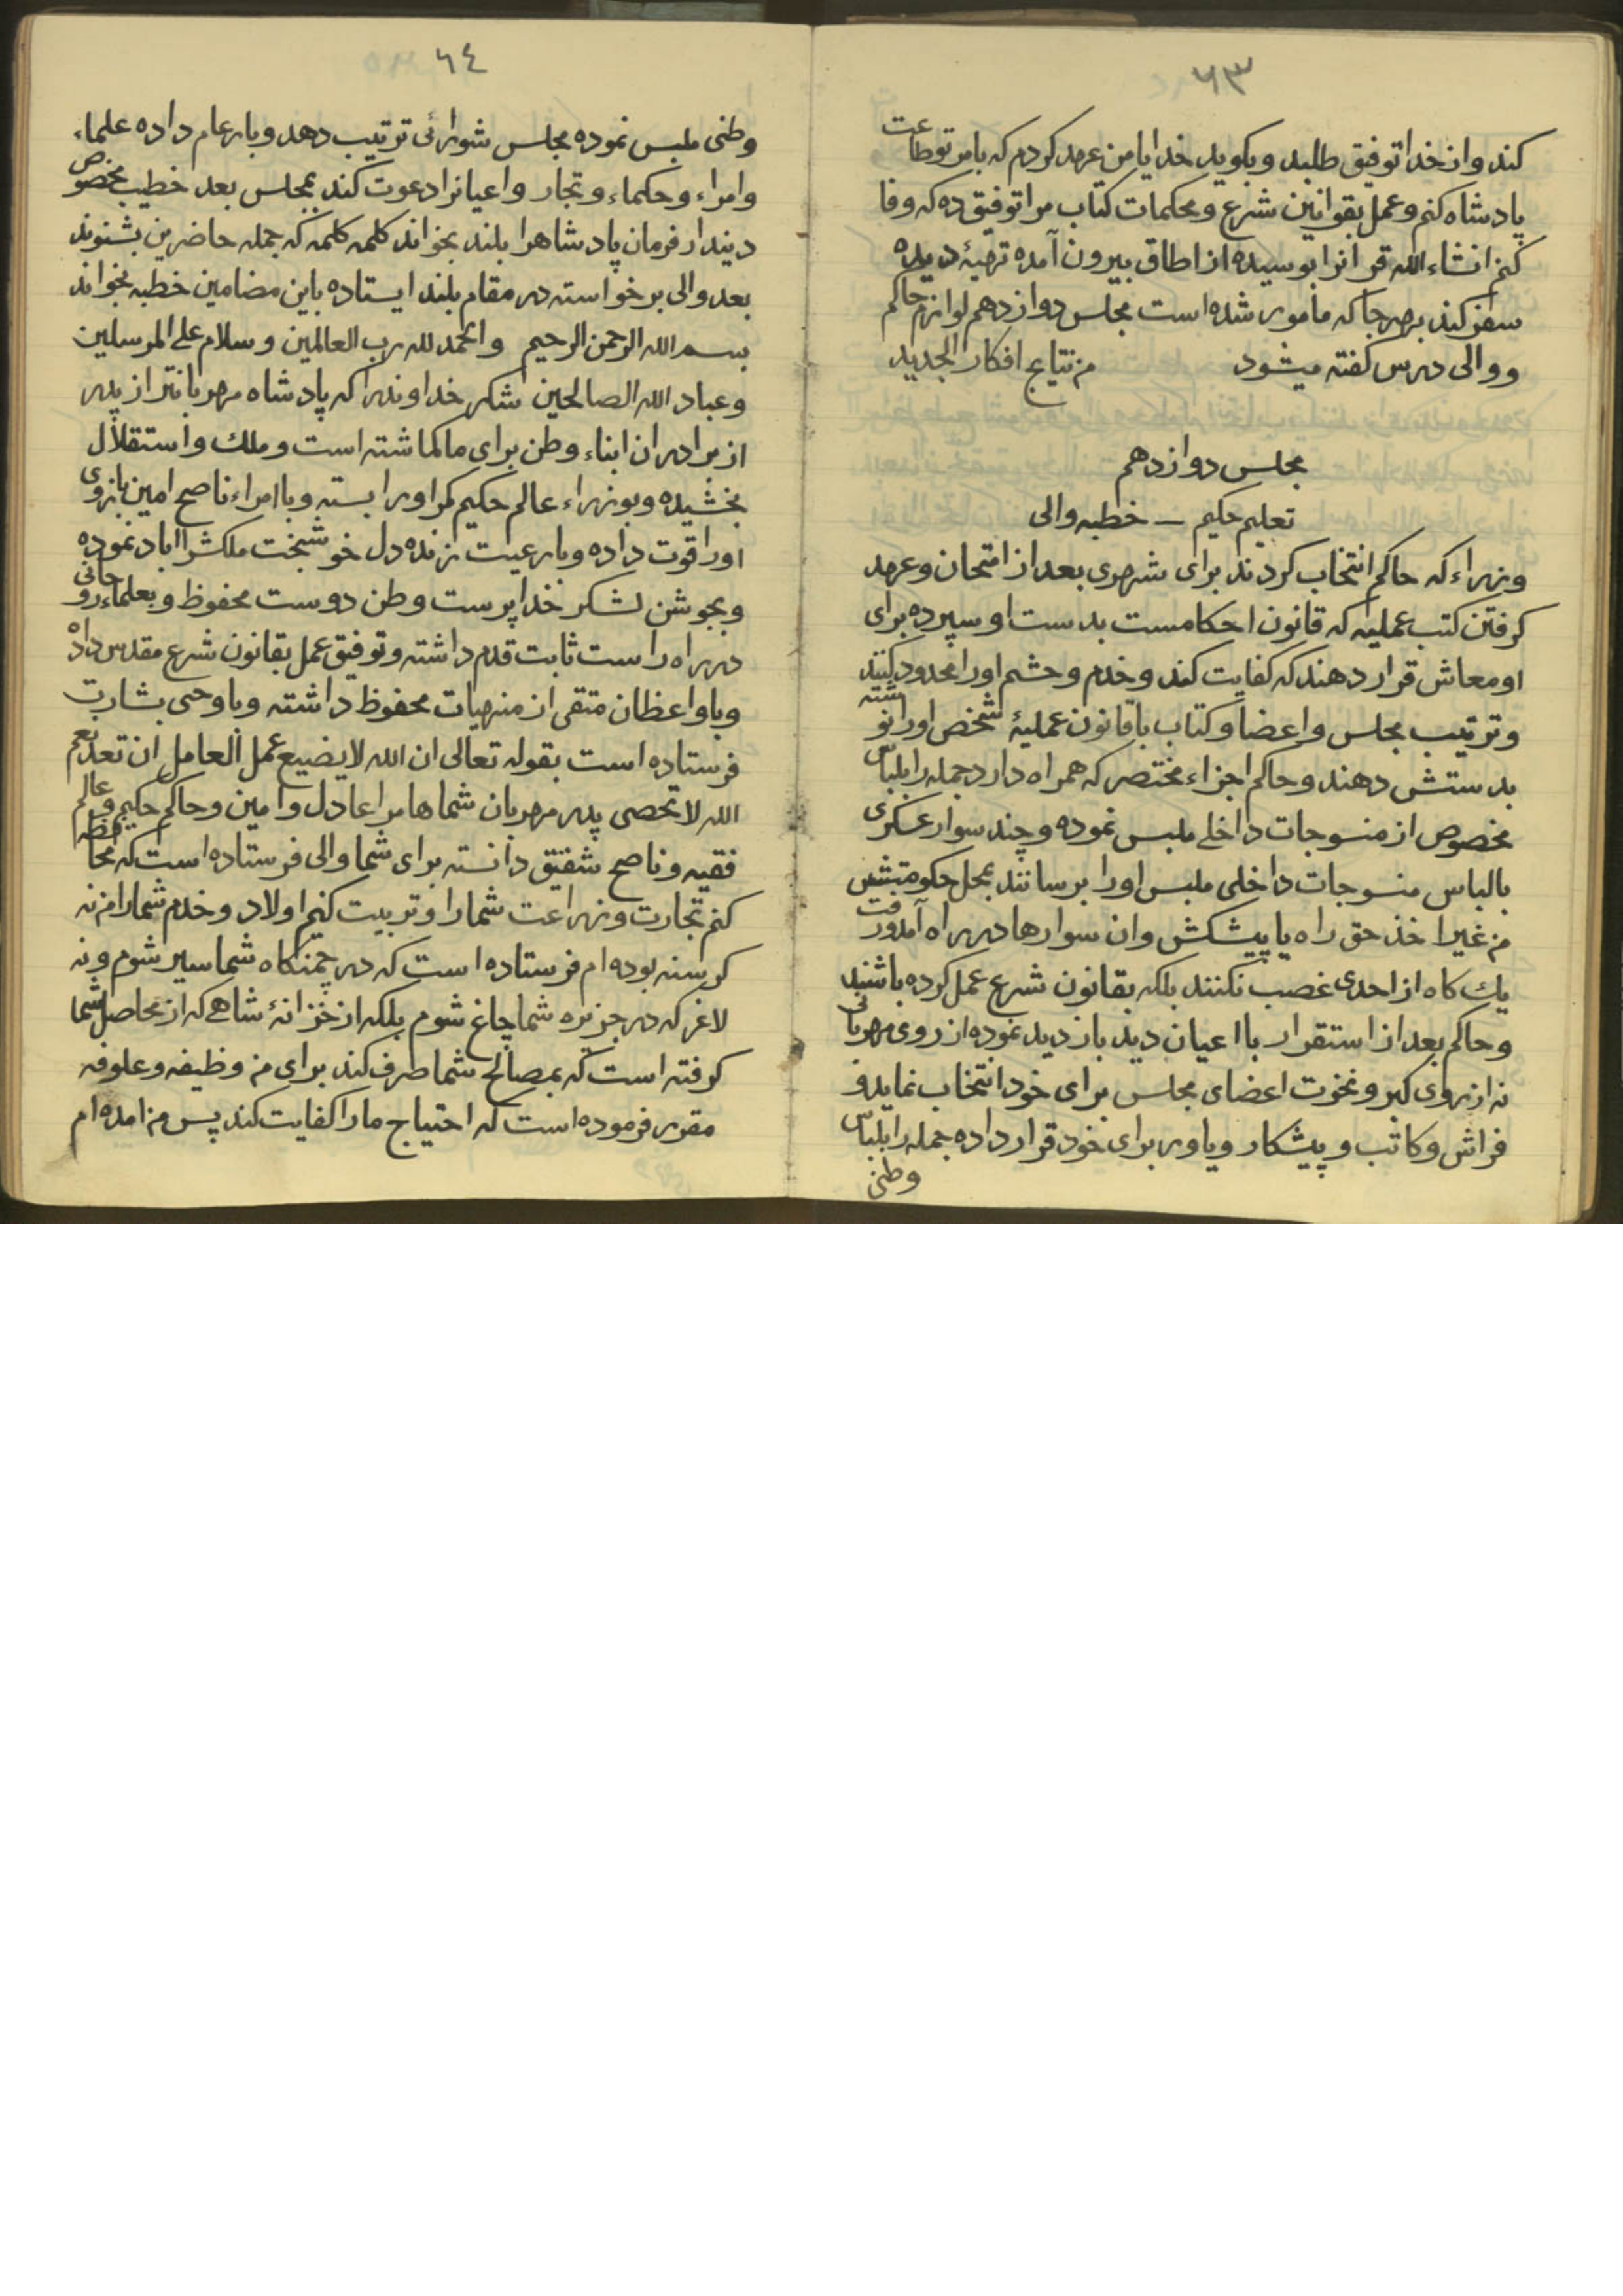 ٦٣
کند و از خدا توفیق طلبد و بکوید خدایا من عهد کردم که بامر تو طاعت
پادشاه کنم و عمل بقوانین شرع و محکمات کتاب مرا توفیق ده که وفا
کنم انشاءالله قرانرا بوسیده از اطاق بیرون آمده تهیهٔ دیده
سفر کند بهرجا که مأمور شده است مجلس دوازدهم لوازم حاکم
و والی درس کفته میشود من نتایج افکار الجدید
مجلس دوازدهم
تعلیم حکیم ـ خطبه والی
وزراء که حاکم انتخاب کردند برای شهری بعد از امتحان و عهد
کرفتن کتب عملیه که قانون احکامست بدست او سپرده برای
او معاش قرار دهند که کفایت کند و خدم و حشم اورا محدود کنند
و ترتیب مجلس و اعضا و کتاب با قانون عملیهٔ شخص اورا نوشته
بدستش دهند و حاکم اجزاء مختصر که همراه دارد جمله را بلباس
مخصوص از منسوجات داخلے ملبس نموده و چند سوار عسکری
بالباس منسوجات داخلی ملبس اورا برسانند بمحل حکومتش
من غیر اخذ حق راه یا پیشکش و ان سوارها در راه آمد و رفت
یك کاه از احدی غصب نکنند بلکه بقانون شرع عمل کرده باشند
و حاکم بعد از استقرار با اعیان دید بازدید نموده از روی مهربانی
نه از روی کبر و نخوت اعضای مجلس برای خود انتخاب نماید و
فراش و کاتب و پیشکار و یاور برای خود قرار داده جمله را بلباس
وطنی
٦٤
وطنی ملبس نموده مجلس شورائی ترتیب دهد و بار عام داده علماء
و امراء و حکماء و تجار و اعیانرا دعوت کند بمجلس بعد خطیب مخصوص
دیندار فرمان پادشاهرا بلند بخواند کلمه کلمه که جمله حاضرین بشنوند
بعد والی برخواسته در مقام بلند ایستاده باین مضامین خطبه بخواند
بسم الله الرحمن الرحیم و الحمد لله رب العالمین و سلام علی المرسلین
و عباد الله الصالحین شکر خداوندرا که پادشاه مهربانتر از پدر
از برادران ابناء وطن برای ما کماشته است و ملك و استقلال
بخشیده و بوزراء عالم حکیم کمر اورا بسته و با امراء ناصح امین بازوی
اورا قوت داده و با رعیت زنده دل خوشبخت ملکش را اباد نموده
و بجوشن لشکر خدا پرست وطن دوست محفوظ و بعلماء روحانی
در راه راست ثابت قدم داشته و توفیق عمل بقانون شرع مقدس داده
و باواعظان متقی از منهیات محفوظ داشته و با وحی بشارت
فرستاده است بقوله تعالی ان الله لا یضیع عمل العامل ان تعد نعم
الله لا تحصی پدر مهربان شماها مرا عادل و امین و حاکم حکیم و عالم
فقیه و ناصح شفیق دانسته برای شما والی فرستاده است که محافظه
کنم تجارت و زراعت شما را و تربیت کنم اولاد و خدم شما را من نه
کرسنه بوده ام فرستاده است که در چمنکاه شما سیر شوم و نه
لاغر که در جزیره شما چاغ شوم بلکه از خزانهٔ شاهے که از محاصل شما
کرفته است که بمصالح شما صرف کند برای من وظیفه و علوفه
مقرر فرموده است که احتیاج ما را کفایت کند پس من امده ام